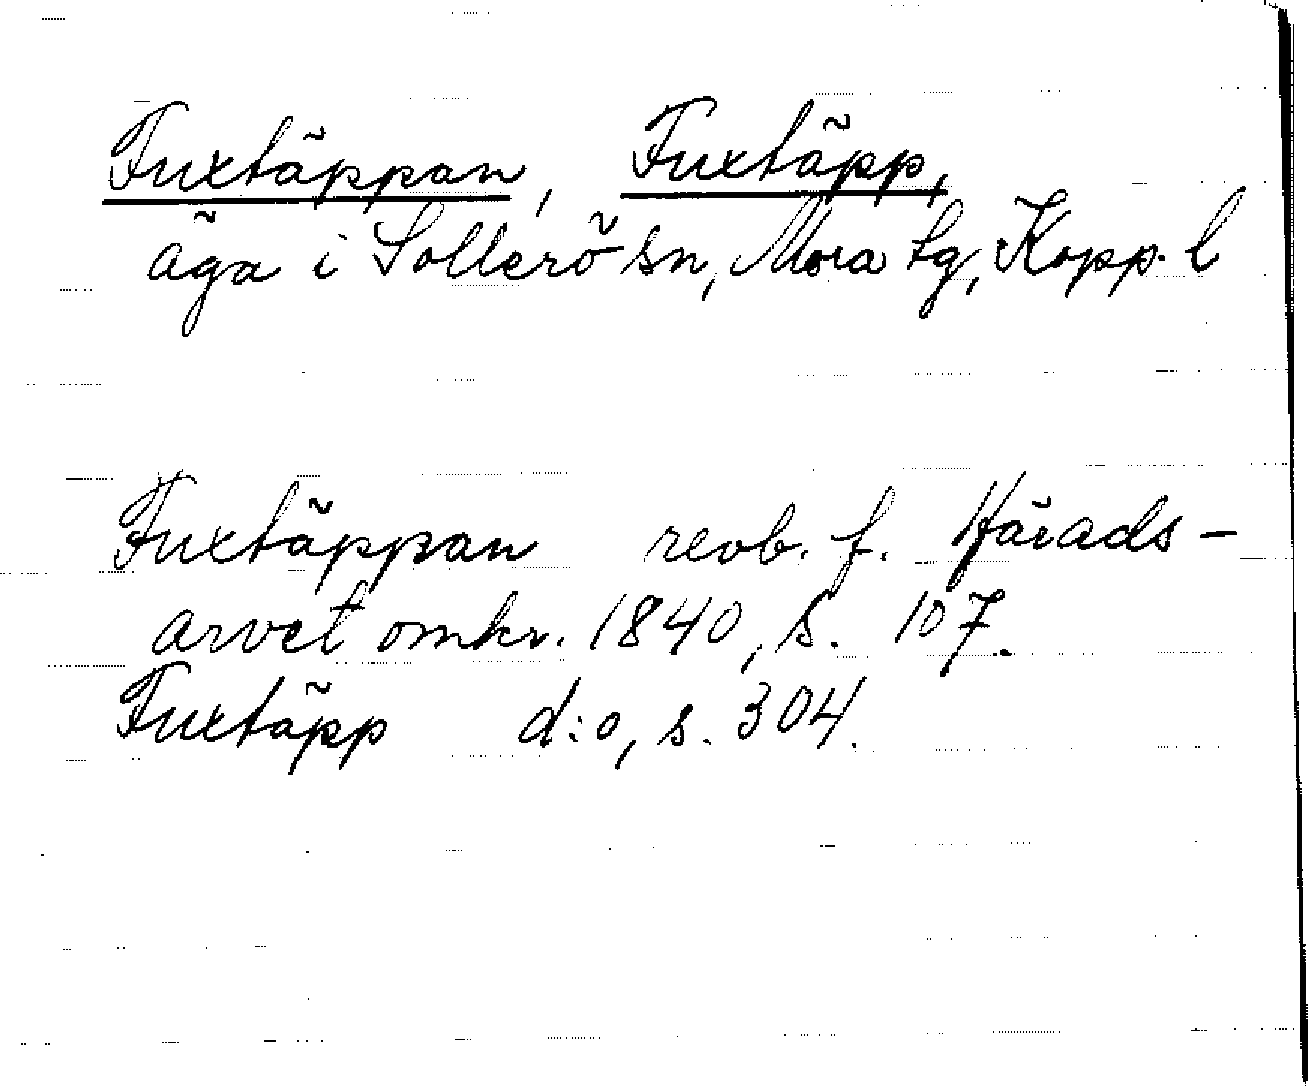 Fuxtäppan, Fuxtäpp,
äga i Sollerö sn, Mora tg, Kopp. l
Fuxtäppan revb. f. Härads-
arvet omkr. 1840, s. 107.
Fuxtäpp d:o, s. 304.